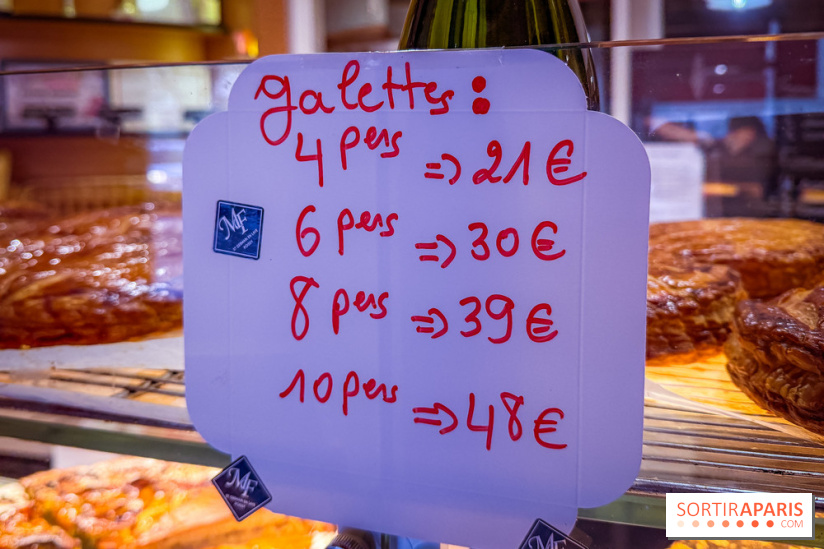 galettes :
4 pers => 21 €
6 pers => 30 €
8 pers => 39 €
10 pers => 48 €
MF
MF
MF
SORTIRAPARIS
.COM